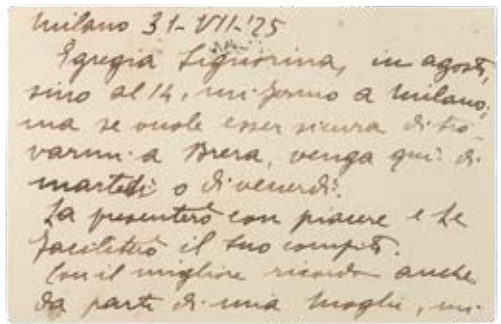 Milano 31-VII-'25
Egregia Signorina, in agosto,
sino al 14, mi fermo a Milano;
ma se vuole esser sicura di tro-
varmi a Brera, venga qui di
martedì o di venerdì.
La presenterò con piacere e Le
faciliterò il suo compito.
Con il migliore ricordo anche
da parte di mia moglie, mi